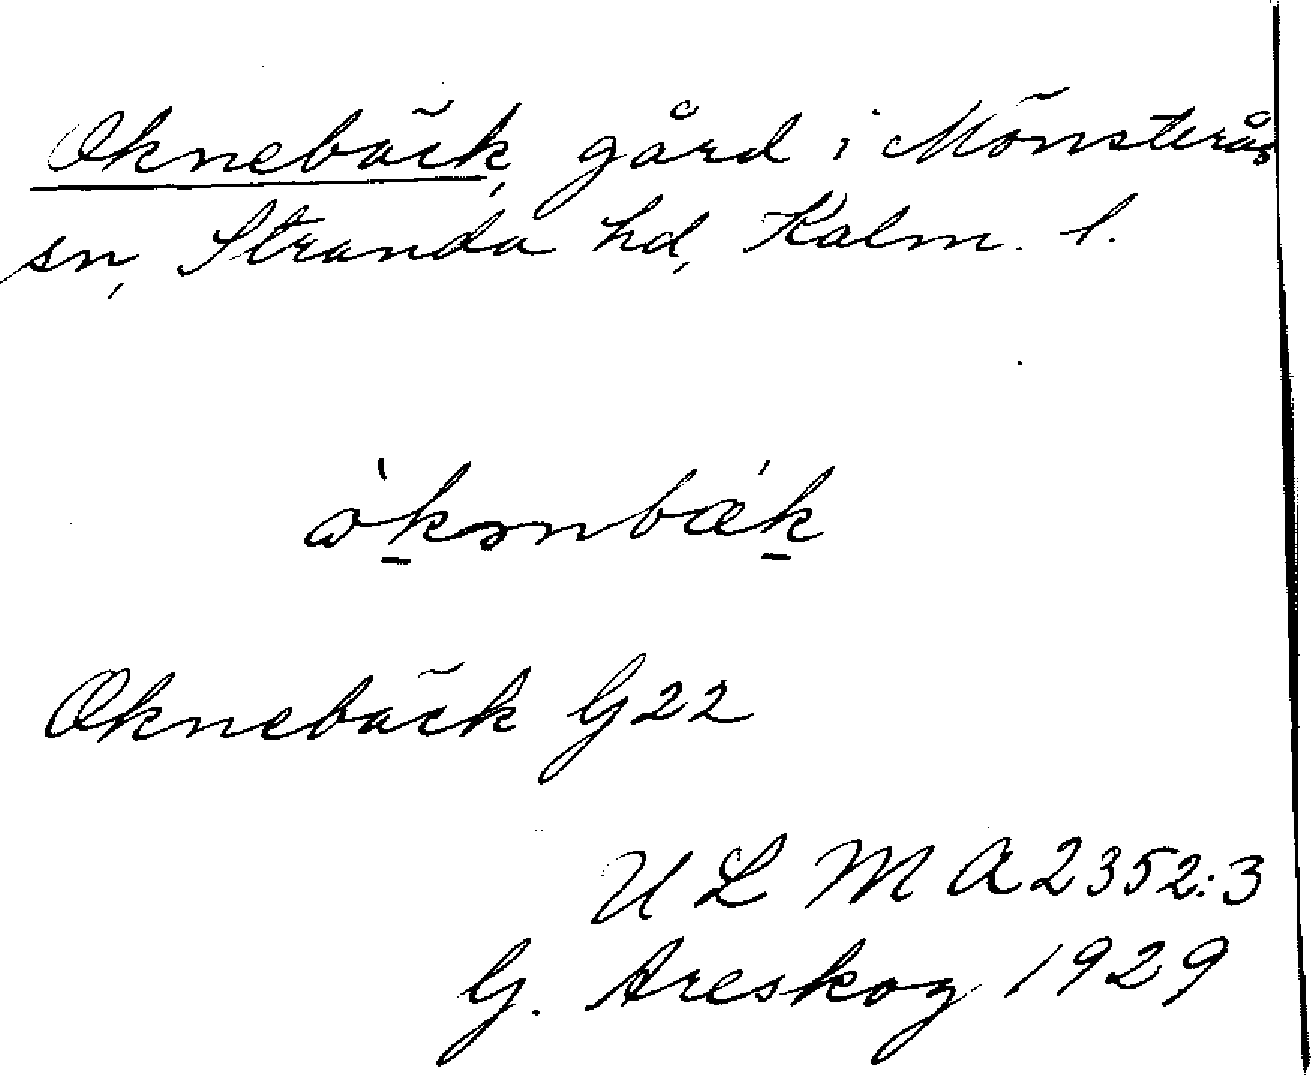 Oknebäck, gård i Mönsterås
sn, Stranda hd, Kalm. l.
ò̱kənbǽḵ
Oknebäck G22
ULMA 2352:3
G. Areskog 1929